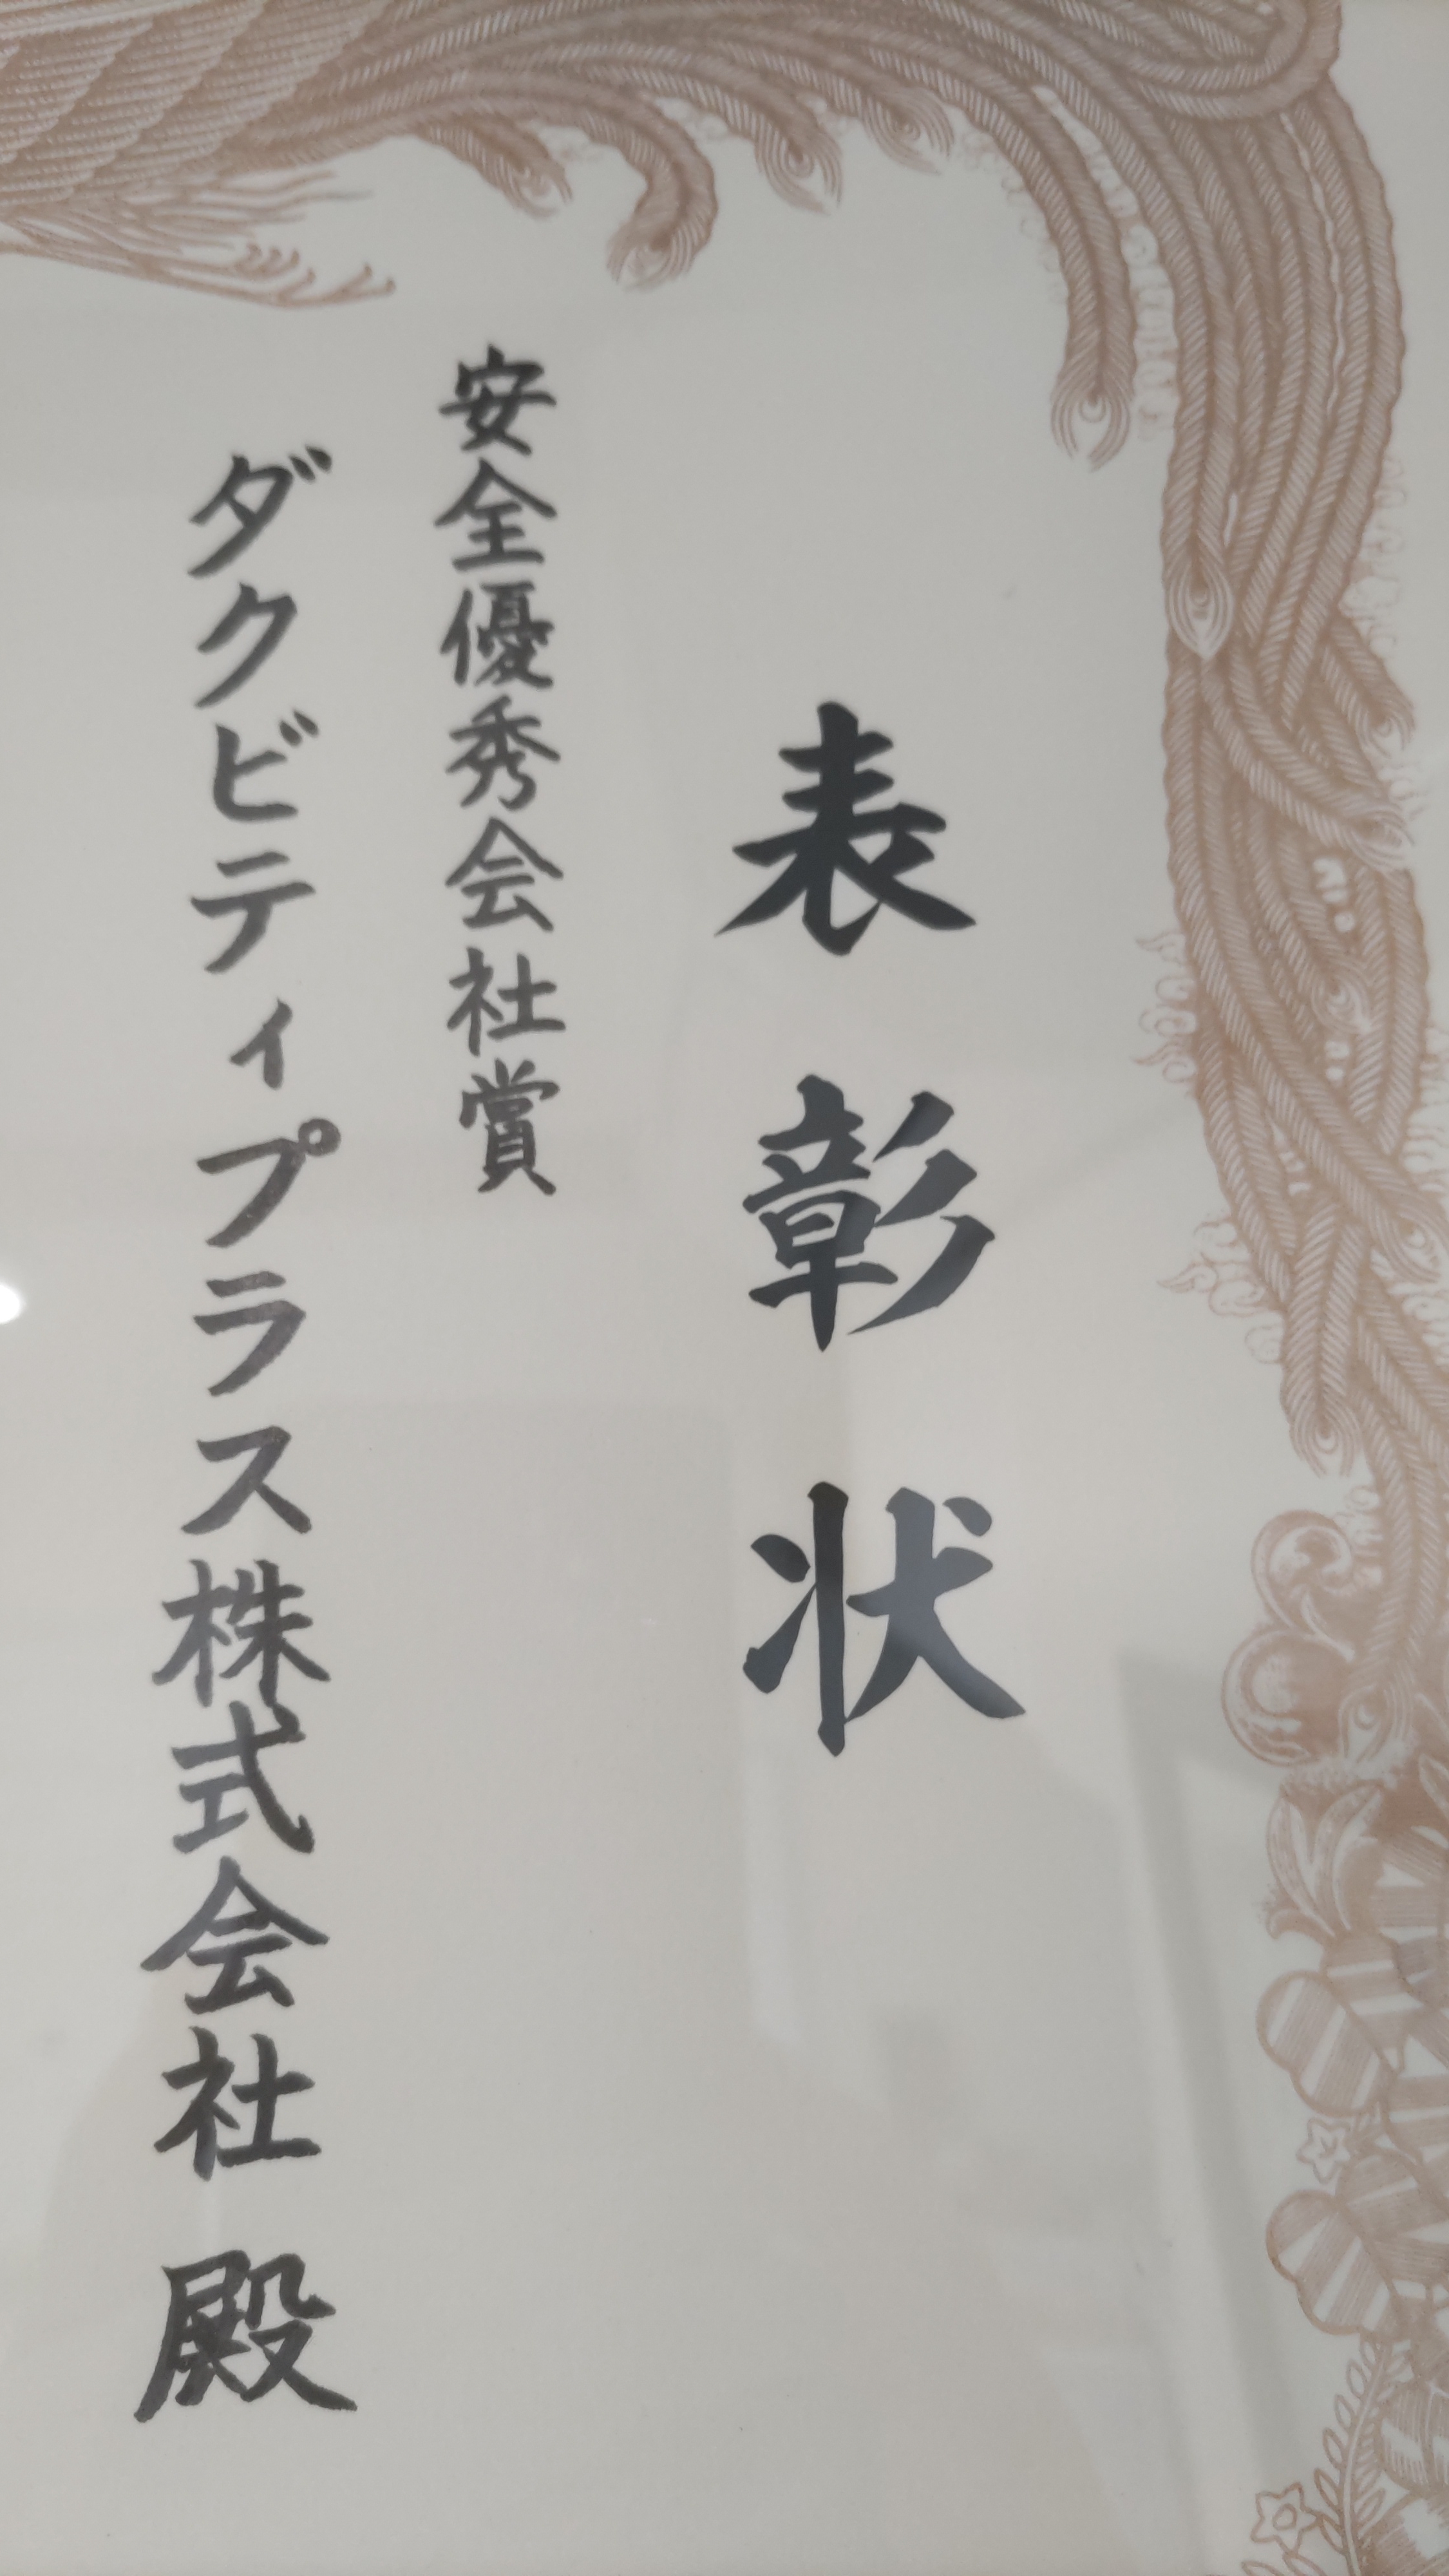 表彰状
安全優秀会社賞
ダクビティプラス株式会社 殿